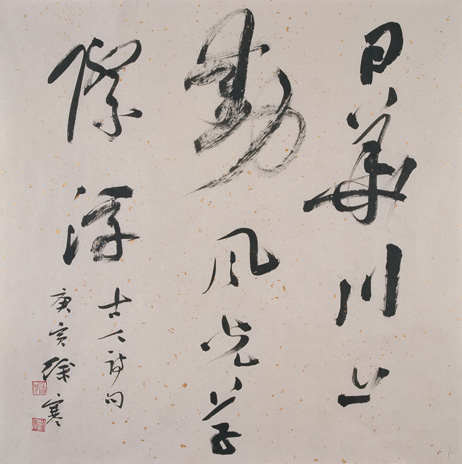 日華川上
動風光草
際浮
古人诗句
庚寅徐寒